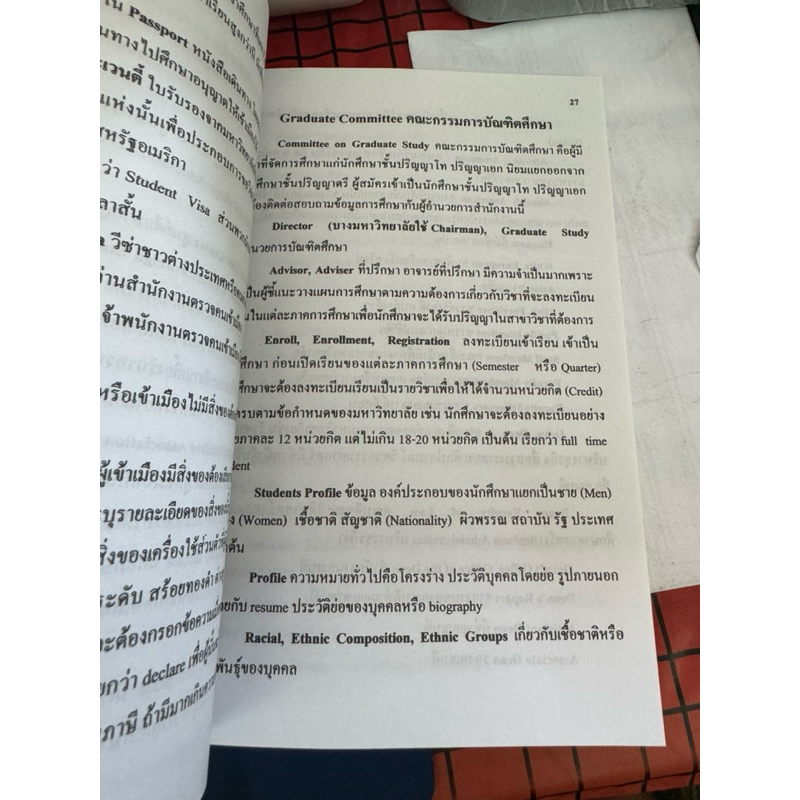 ใน Passport หนังสือเดินทาง
นทางไปศึกษาอนุญาตให้เข้าเมือง
ะเวนตี้ ใบรับรองจากมหาวิทยาลัย
แห่งนั้นเพื่อประกอบการขอวีซ่า
หรัฐอเมริกา
ว่า Student Visa ส่วนพวก
ลาสั้น
a วีซ่าชาวต่างประเทศหรือ
่านสำนักงานตรวจคนเข้าเมือง
จ้าพนักงานตรวจคนเข้าเมือง
หรือเข้าเมืองไม่มีสิ่งของต้อง
ผู้เข้าเมืองมีสิ่งของต้อง
ะบุรายละเอียดของสิ่งของ
สิ่งของเครื่องใช้ส่วนตัว
ระดับ สร้อยทองคำ
จะต้องกรอกข้อความ
ยกว่า declare เพื่อผู้
ภาษี ถ้ามีมากเกิน
27
Graduate Committee คณะกรรมการบัณฑิตศึกษา
Committee on Graduate Study คณะกรรมการบัณฑิตศึกษา คือผู้มี
าที่จัดการศึกษาแก่นักศึกษาชั้นปริญญาโท ปริญญาเอก นิยมแยกออกจาก
ศึกษาชั้นปริญญาตรี ผู้สมัครเข้าเป็นนักศึกษาชั้นปริญญาโท ปริญญาเอก
้องติดต่อสอบถามข้อมูลการศึกษากับผู้อำนวยการสำนักงานนี้
Director (บางมหาวิทยาลัยใช้ Chairman), Graduate Study
นวยการบัณฑิตศึกษา
Advisor, Adviser ที่ปรึกษา อาจารย์ที่ปรึกษา มีความจำเป็นมากเพราะ
เป็นผู้ชี้แนะวางแผนการศึกษาตามความต้องการเกี่ยวกับวิชาที่จะลงทะเบียน
นในแต่ละภาคการศึกษาเพื่อนักศึกษาจะได้รับปริญญาในสาขาวิชาที่ต้องการ
Enroll, Enrollment, Registration ลงทะเบียนเข้าเรียน เข้าเป็น
ศึกษา ก่อนเปิดเรียนของแต่ละภาคการศึกษา (Semester หรือ Quarter)
ศึกษาจะต้องลงทะเบียนเรียนเป็นรายวิชาเพื่อให้ได้จำนวนหน่วยกิต (Credit)
ครบตามข้อกำหนดของมหาวิทยาลัย เช่น นักศึกษาจะต้องลงทะเบียนอย่าง
ยภาคละ 12 หน่วยกิต แต่ไม่เกิน 18-20 หน่วยกิต เป็นต้น เรียกว่า full time
dent
Students Profile ข้อมูล องค์ประกอบของนักศึกษาแยกเป็นชาย (Men)
ง (Women) เชื้อชาติ สัญชาติ (Nationality) ผิวพรรณ สถาบัน รัฐ ประเทศ
ต้น
Profile ความหมายทั่วไปคือโครงร่าง ประวัติบุคคลโดยย่อ รูปภายนอก
ยกับ resume ประวัติย่อของบุคคลหรือ biography
Racial, Ethnic Composition, Ethnic Groups เกี่ยวกับเชื้อชาติหรือ
พันธุ์ของบุคคล